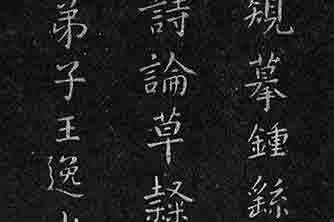 規摹鍾繇
詩論草隸
弟子王逸